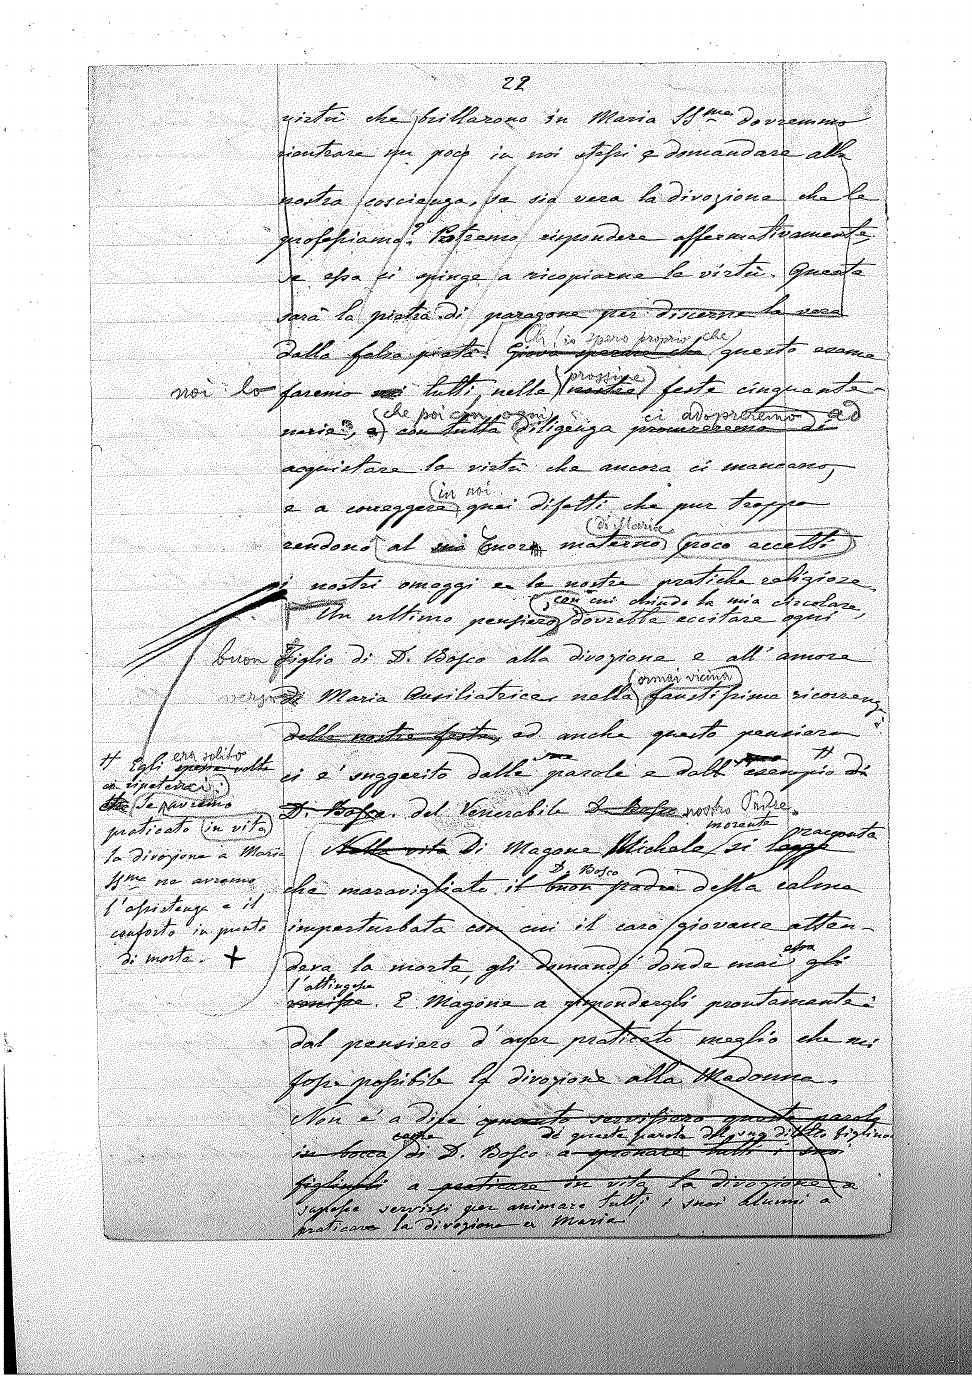 22
virtù che brillarono in Maria SS.ma dovremmo
rientrare un poco in noi stessi e domandare alla
nostra coscienza, se sia vera la divozione che le
professiamo? Potremo rispondere affermativamente,
se essa ci spinge a ricopiarne le virtù. Questa
sarà la pietra di paragone per discerne la vera
Oh, io spero proprio che
dalla falsa pietà. Giova sperare che questo esame
prossime
noi lo faremo tutti, nelle nostre feste cinquante-
che poi con ogni ci adopreremo ad
narie, e con tutta diligenza procureremo di
acquistare le virtù che ancora ci mancano,
in noi
e a correggere quei difetti che pur troppo
di Maria
rendono al Cuore materno poco accetti
i nostri omaggi e le nostre pratiche religiose.
con cui chiudo la mia circolare,
Un ultimo pensiero dovrebbe eccitare ogni
buon figlio di D. Bosco alla divozione e all'amore
ormai vicina
verso di Maria Ausiliatrice, nella faustissima ricorrenza
delle nostre feste, ed anche questo pensiero
ci è suggerito dalle parole e dall'esempio di
D. Bosco. del Venerabile D. Bosco nostro Padre.
# Egli era solito
spesse volte
ripeterci:
Se avremo
praticato in vita
la divozione a Maria
SS.ma ne avremo
l'assistenza e il
conforto in punto
di morte. +
morente racconta
Nella vita Di Magone Michele si legge
D. Bosco
che maravigliato il buon padre della calma
imperturbata con cui il caro giovane atten-
essa
deva la morte, gli domandò donde mai gli
l'attingesse
venisse. E Magone a rispondergli prontamente:
dal pensiero d'aver praticato meglio che mi
fosse possibile la divozione alla Madonna.
Non è a dire quanto servissero queste parole
come di queste parole del suo diletto figliuolo
in bocca di D. Bosco a spronare tutti i suoi
figliuoli a praticare in vita la divozione a
sapesse servirsi per animare tutti i suoi alunni a
praticare la divozione a Maria